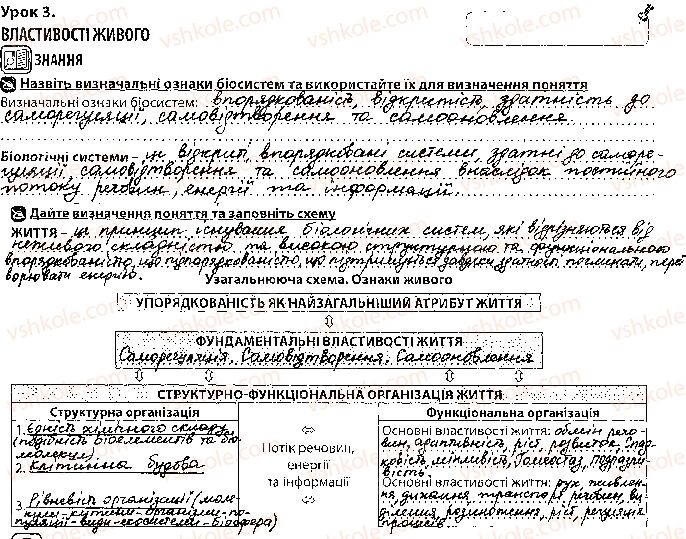 Урок 3.
ВЛАСТИВОСТІ ЖИВОГО
ЗНАННЯ
Назвіть визначальні ознаки біосистем та використайте їх для визначення поняття
Визначальні ознаки біосистем: впорядкованість, відкритість, здатність до
саморегуляції, самовідтворення та самооновлення
Біологічні системи – це відкриті, впорядковані системи, здатні до саморе-
гуляції, самовідтворення та самооновлення внаслідок постійного
потоку речовин, енергії та інформації.
Дайте визначення поняття та заповніть схему
ЖИТТЯ – це принцип існування біологічних систем, які відрізняються від
неживого складністю та високою структурною та функціональною
впорядкованістю, що підтримується завдяки здатності поглинати, перет
ворювати енергію.
Узагальнююча схема. Ознаки живого
УПОРЯДКОВАНІСТЬ ЯК НАЙЗАГАЛЬНІШИЙ АТРИБУТ ЖИТТЯ
ФУНДАМЕНТАЛЬНІ ВЛАСТИВОСТІ ЖИТТЯ
Саморегуляція. Самовідтворення. Самооновлення
СТРУКТУРНО-ФУНКЦІОНАЛЬНА ОРГАНІЗАЦІЯ ЖИТТЯ
Структурна організація
1. єдність хімічного складу
(подібність біоелементів та біо
молекул).
2. Клітинна будова
3. Рівневість організації (моле-
кули-клітини-організми-по-
пуляції-види-екосистеми-біосфера)
Потік речовин,
енергії
та інформації
Функціональна організація
Основні властивості життя: обмін речо-
вин, адаптивність, ріст, розвиток, Спад
ковість, мінливість, Гомеостаз, подраз-
ливість
Основні властивості життя: рух, живлен-
ня, дихання, транспорт речовин, ви
ділення, розмноження, ріст, регуляція
процесів